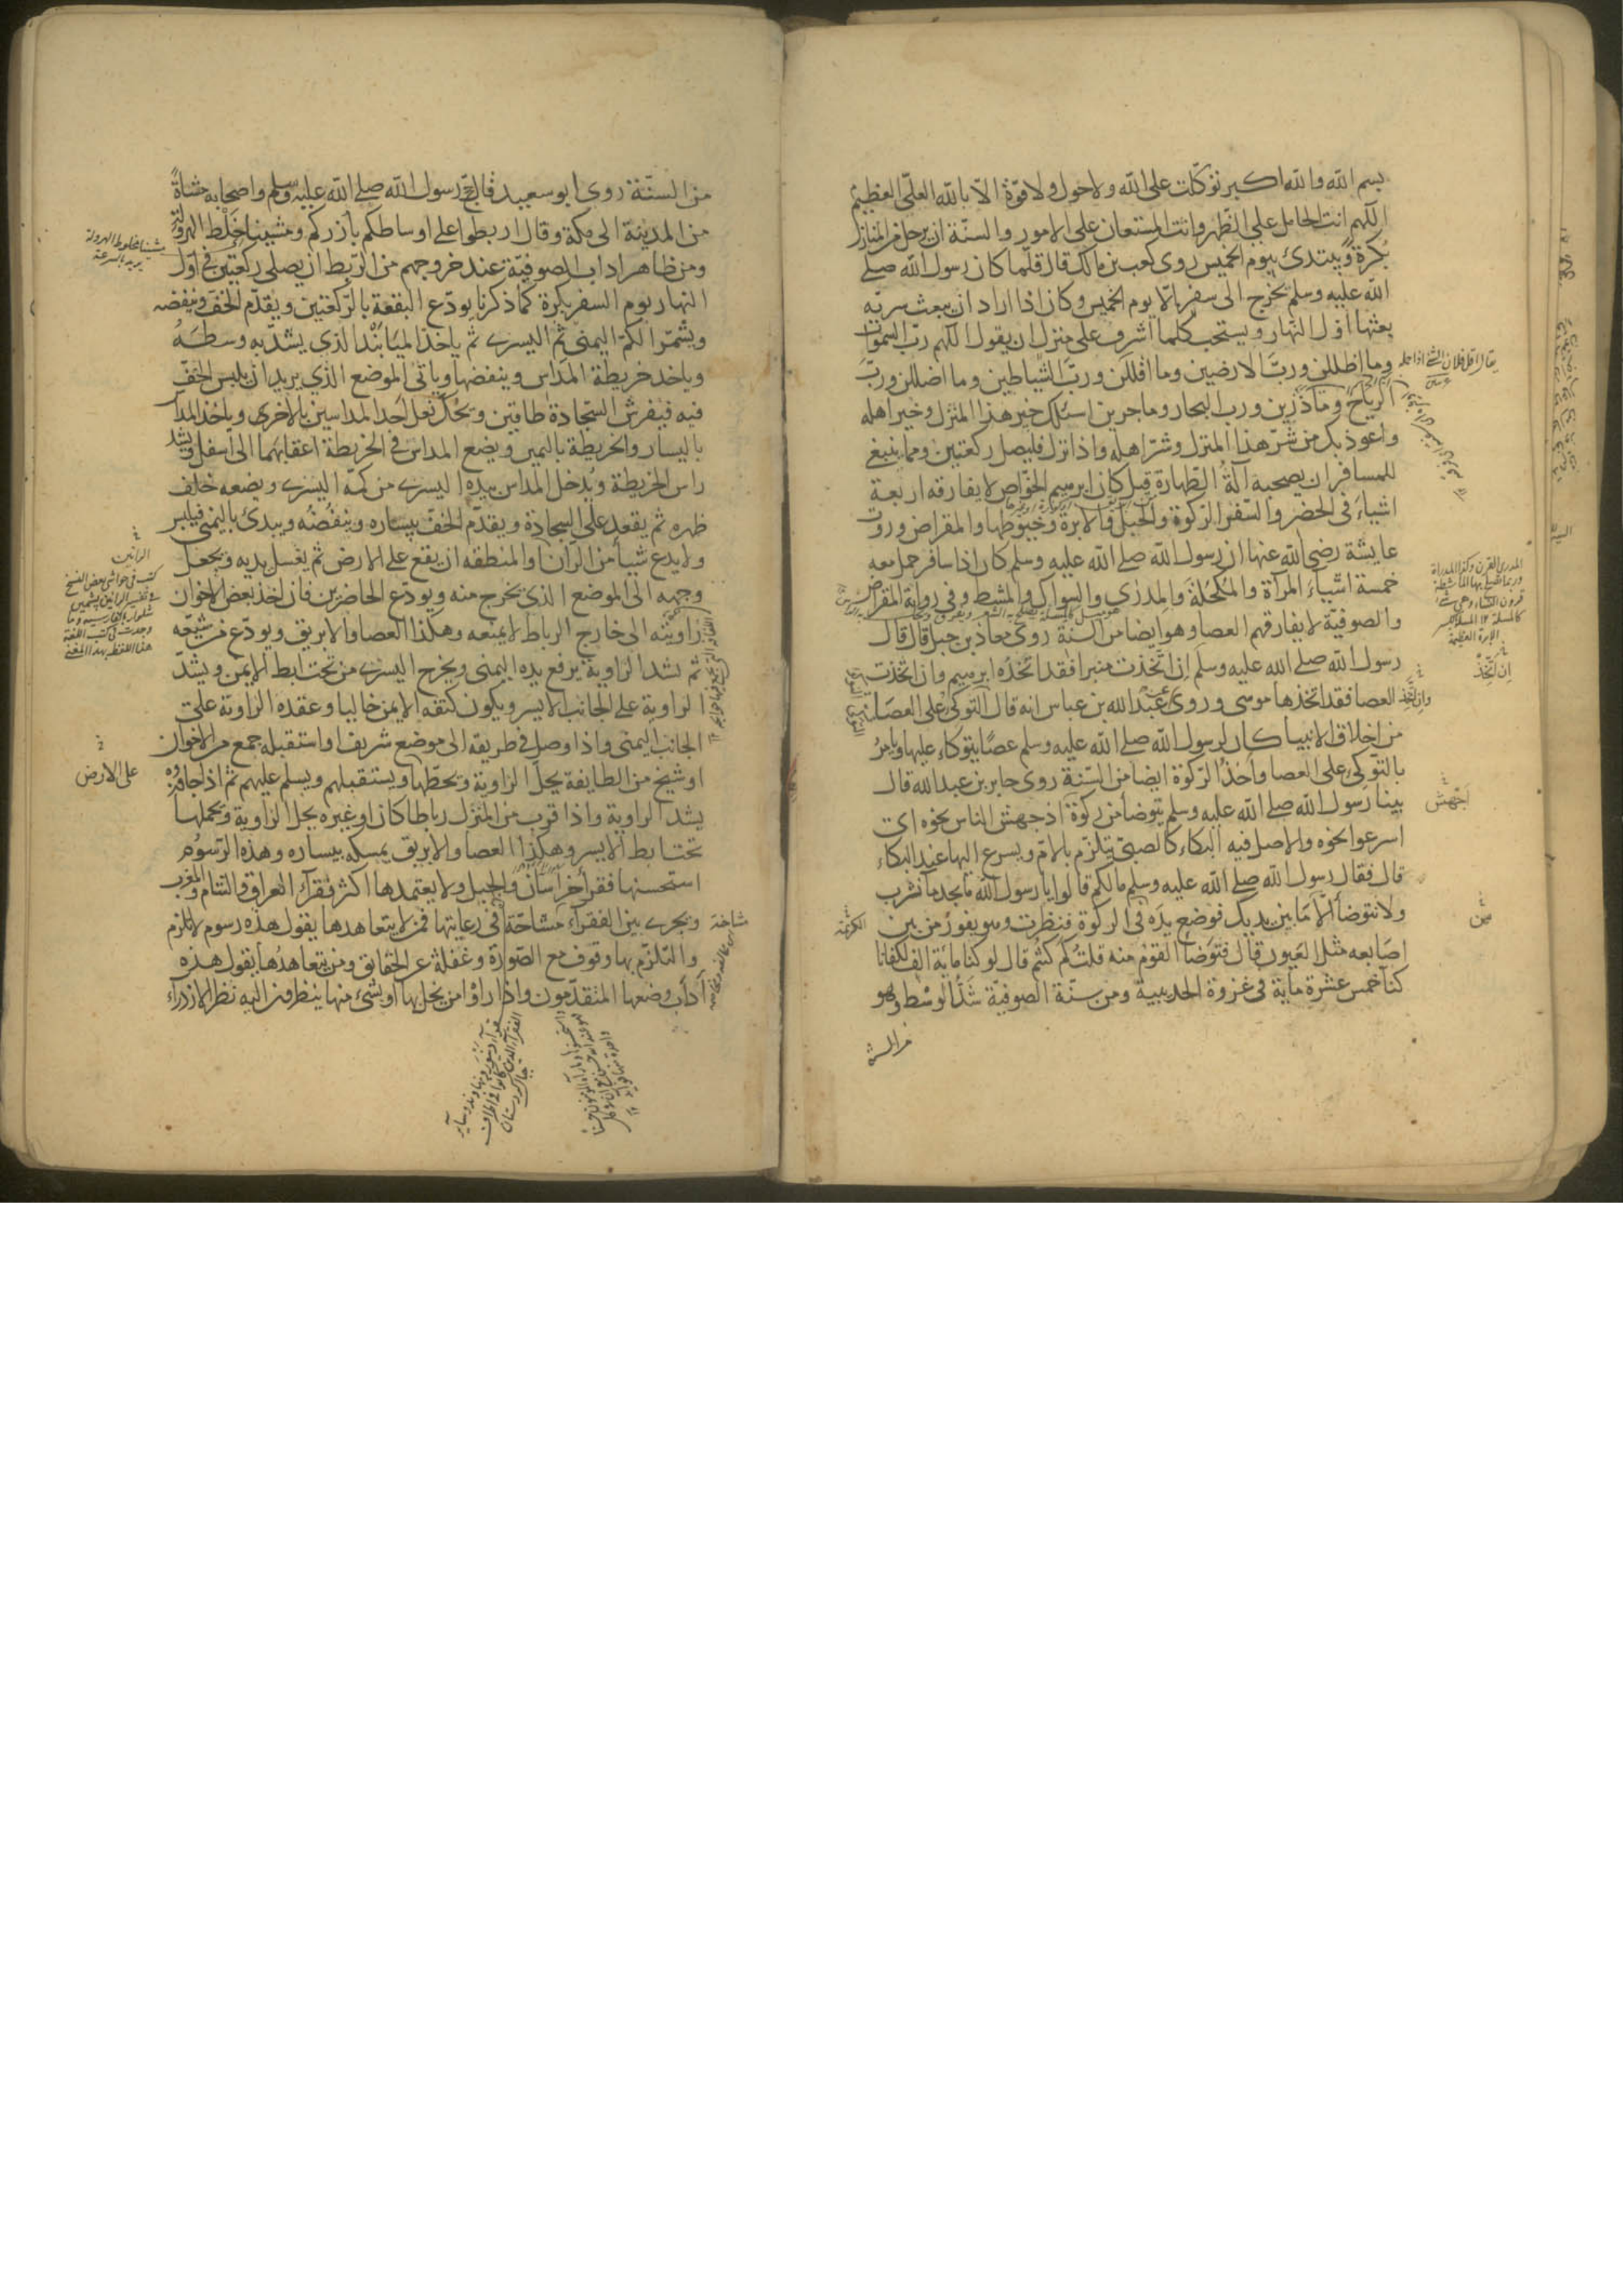 بسم الله والله اكبر توكّلت على الله ولا حول ولا قوّة الّا بالله العلىّ العظيم
اللّهم انت الحامل على الظهر وانت المستعان على الامور والسنّة ان يرحل من المنازل
بكرةً ويبتدئ بيوم الخميس روى كعب بن مالك قال قلّما كان رسول الله صلى
الله عليه وسلم يخرج الى سفر الّا يوم الخميس وكان اذا اراد ان يبعث سريّه
بعثها اوّل النّهار ويستحب كُلما اشرف على منزل ان يقول اللّهم ربّ السموات
وما اظللن وربّ الارضين وما اقللن وربّ الشّياطين وما اضللن وربّ
الرّياح وما ذرين وربّ البحار وما جرين اسئلك خير هذا المنزل وخير اهله
واعوذ بك من شرّ هذا المنزل وشرّ اهله واذا نزل فليصل ركعتين ومما ينبغى
للمسافر ان يصحبه آلةُ الطّهارة قيل كان ابرهيم الخوّاص لا يفارقه اربعة
اشياء فى الحضر والسّفر الرّكوة والحبل والابرة وخيوطها والمقراض وروت
عايشة رضى الله عنها ان رسول الله صلى الله عليه وسلم كان اذا سافر حمل معه
خمسة اشياء المرآة والمُكحُلة والمِدرٰى والسواك والمشط وفى رواية المقراض
والصوفيّة لا يفارقهم العصا وهو ايضا من السنة روى معاذ بن جبل قال قال
رسول الله صلى الله عليه وسلم اِن اتّخذت منبرا فقد اتّخذه ابرهيم وان اتّخذت
العصا فقد اتخذها موسى وروى عبد الله بن عباس انه قال التوكّى على العصا
من اخلاق الانبيا كان لرسول الله صلى الله عليه وسلم عصًا يتوكّاء عليها ويامرُ
بالتوكّى على العصا واخذُ الرّكوة ايضا من السّنة روى جابر بن عبد الله قال
بينا رسول الله صلى الله عليه وسلم يتوضأ من ركوة اذ جهش الناس نحوه اى
اسرعوا نحوه والاصل فيه البكاء كالصبىّ يتلزّم بالامّ ويسرع اليها عند البكاء
قال فقال رسول الله صلى الله عليه وسلم ما لكم قالوا يا رسول الله ما نجد ما نشرب
ولا نتوضأ الّا ما بين يديك فوضع يده فى الركوة فنظرت وهو يفورُ من بين
اصابعه مثل العيون قال فتوضأ القوم منه قلت كم كنتم قال لو كنا ماية الف لكفانا
كنا خمس عشرة ماية فى غزوة الحديبية ومن سنّة الصوفيّة شدُّ الوسط وهو
من السنة
اِن اتّخذ
اجهش
من
من السنّة روى ابو سعيد قال حج رسول الله صلى الله عليه وسلم واصحابه مشاةً
من المدينة الى مكة وقال اربطوا على اوساطكم بأزركم ومشينا خلط الهرولة
ومن ظاهر اداب الصوفيّة عند خروجهم من الرّبط ان يصلى ركعتين فى اوّل
النهار يوم السفر بكرة كما ذكرنا يودّع البقعة بالرّكعتين ويقدّم الخفّ وينفضه
ويشمّر الكمّ اليمنى ثم اليسرى ثم ياخذ الميَابَنْد الذى يشدّ به وسطهُ
وياخذ خريطة المداس وينفضها وياتى الموضع الذى يريد ان يلبس الخفّ
فيه فيفرش السّجادة طاقتين ويحكّ نعل احد المداسين بالاخرى وياخذ المداس
باليسار والخريطة باليمين ويضع المداس فى الخريطة اعقابهما الى اسفل ويشد
راس الخريطة ويُدخل المداس بيده اليسرى من كمّه اليسرى ويضعه خلف
ظهره ثم يقعد على السجادة ويقدّم الخفّ بيساره وينفُضُه ويبدئ باليمنى فيلبس
ولا يدع شيأ من الرّان او المنطقه ان يقع على الارض ثم يغسل يديه ويجعل
وجهه الى الموضع الذى يخرج منه ويودّع الحاضرين فان اخذ بعض الاخوان
زاويته الى خارج الرباط لا يمنعه وهكذا العصا والابريق ويودّع من شيّعه
ثم يشد الزاوية يرفع يده اليمنى ويخرج اليسرى من تحت ابط الايمن ويشدّ
الزاوية على الجانب الايسر ويكون كتفه الايمن خاليا وعقده الزاوية على
الجانب اليمنى واذا وصل فى طريقه الى موضع شريف او استقبله جمع من الاخوان
او شيخ من الطايفة يحلّ الزاوية ويحطّها ويستقبلهم ويسلّم عليهم ثم اذا جاوزوه
يشد الزاوية واذا قرب من المنزل رباطا كان او غيره يحل الزاوية ويحملها
تحت ابط الايسر وهكذا العصا والابريق يمسكه بيساره وهذه الرّسوم
استحسنها فقراء خراسان والجبل ولا يعتمدها اكثر فقرآء العراق والشام والمغرب
ويجرى بين الفقرآء مشاحّة فى رعايتها فمن لا يتعاهدها يقول هذه رسوم لا تلزم
والتلزّم بها وقوف مع الصّورة وغفلة عن الحقايق ومن يتعاهدُها يقول هذه
آداب وضعها المتقدّمون واذا راوا من يخل بها او بشىء منها ينظرون اليه نظر الازدراء
الرانين
كتب فى حواشى بعض النسخ
على الارض
مشاحة